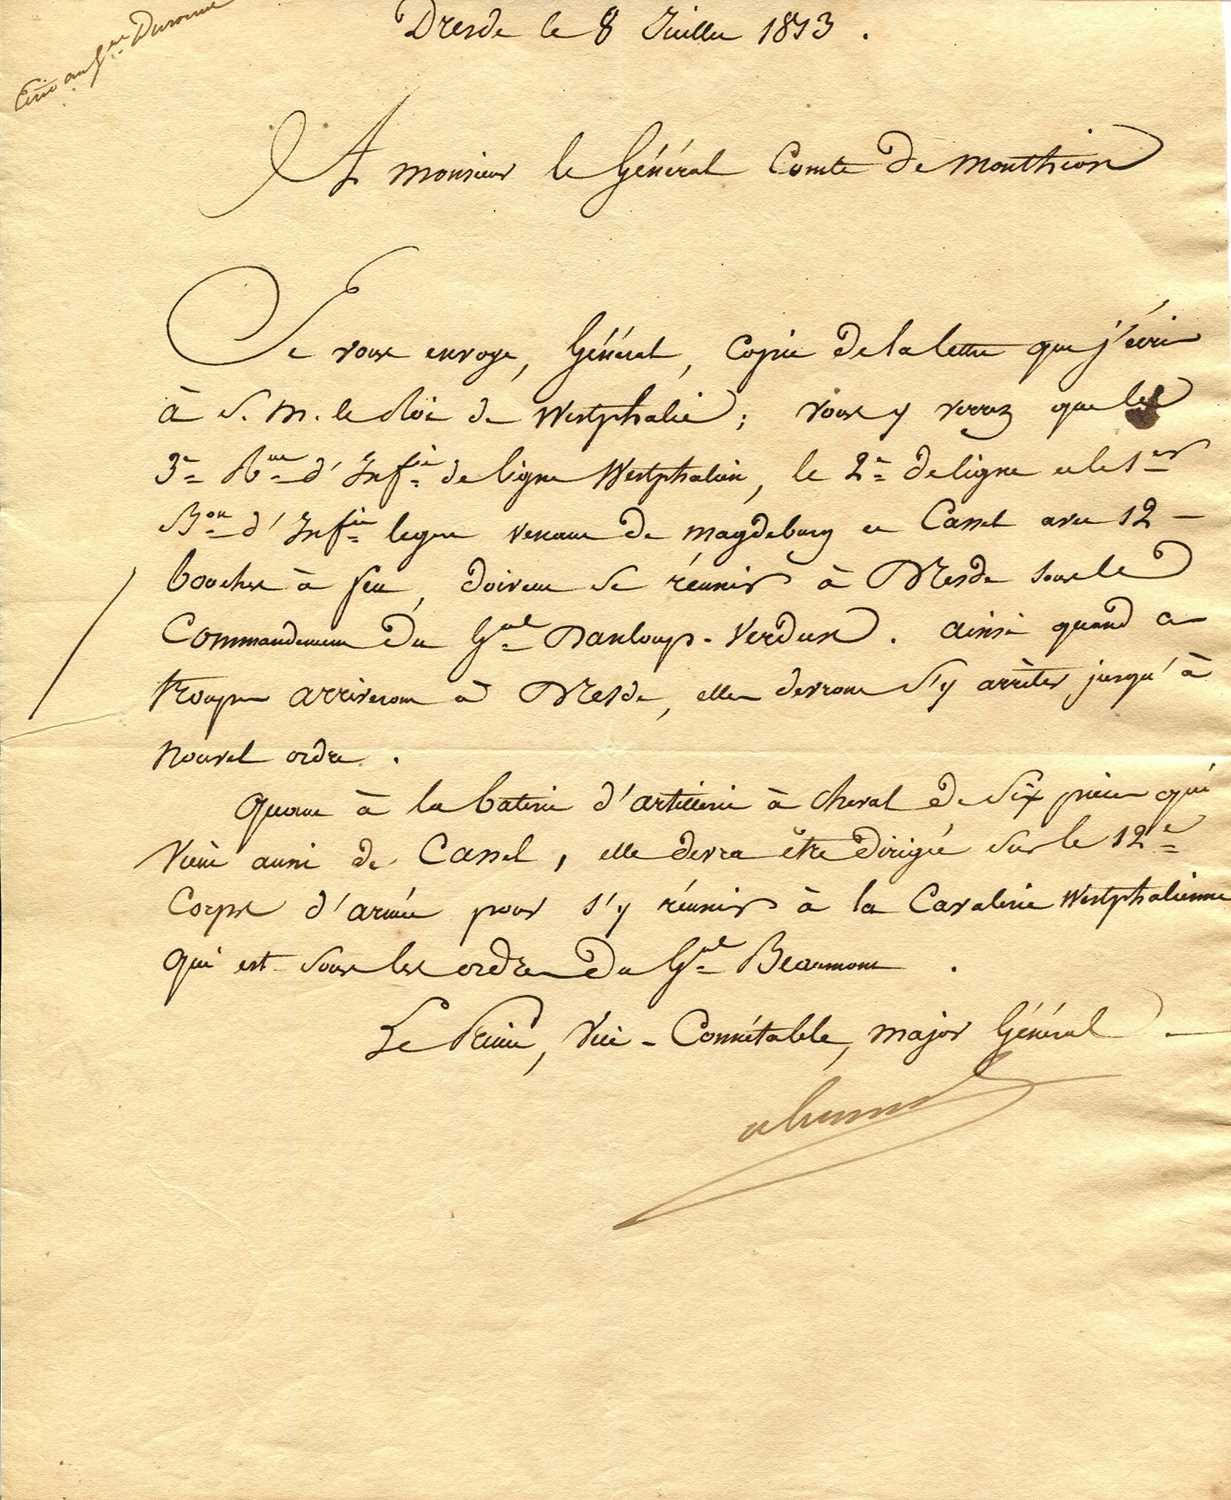 Ecrit au Gal Durosnel
Dresde le 8 Juillet 1813.
A monsieur le Général Comte de Monthion
Je vous envoye, Général, copie de la lettre que j'écris
à S. M. le Roi de Westphalie; vous y verrez que les
3e Rme d'Infie de ligne Westphalien, le 2e de ligne et le 1er
Bon d'Infie legere venant de Magdebourg et Cassel avec 12
bouches à feu, doivent se réunir à Dresde sous le
Commandement du Gal Danloup-Verdun. ainsi quand ces
troupes arriveront à Dresde, elles devront s'y arrêter jusqu'à
nouvel ordre.
Quant à la baterie d'artillerie à cheval de six pièces qui
vient aussi de Cassel, elle devra être dirigée sur le 12e
Corps d'armée pour s'y réunir à la Cavalerie Westphalienne
qui est sous les ordres du Gal Beaumont.
Le Prince, Vice-Connétable, major Général